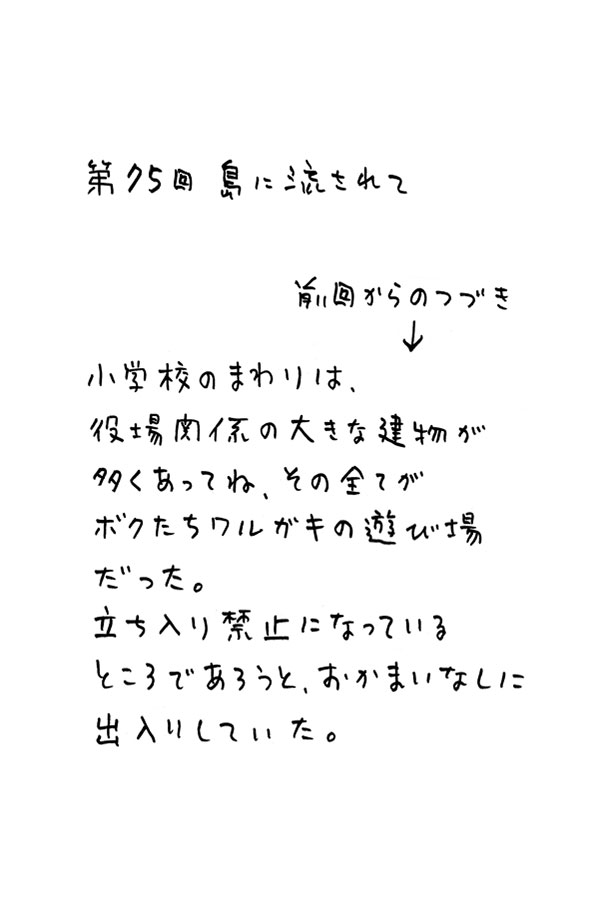 第75回 島に流されて
前回からのつづき
↓
小学校のまわりは、
役場関係の大きな建物が
多くあってね、その全てが
ボクたちワルガキの遊び場
だった。
立ち入り禁止になっている
ところであろうと、おかまいなしに
出入りしていた。